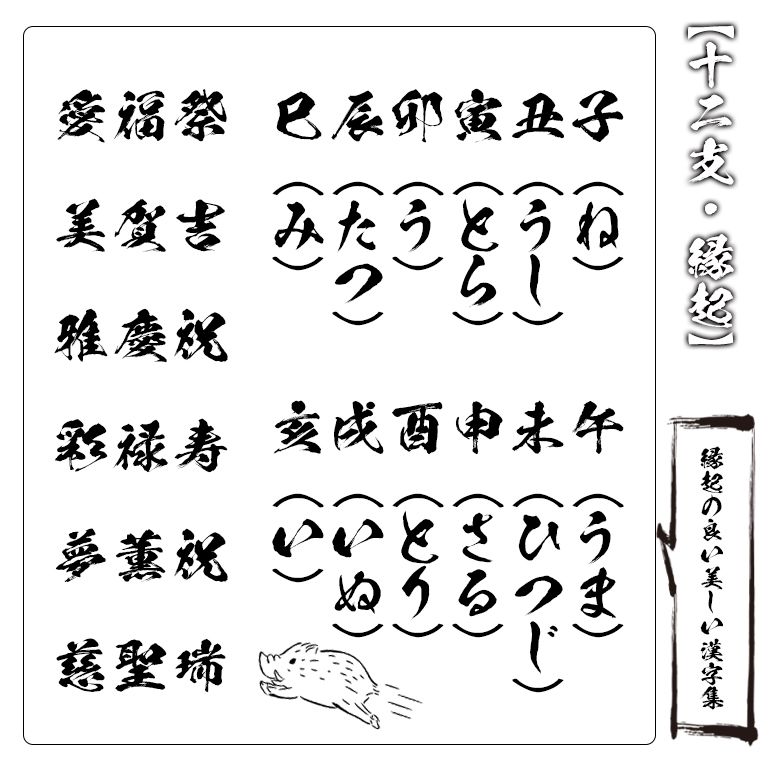 【十二支・縁起】
縁起の良い美しい漢字集
子（ね）
丑（うし）
寅（とら）
卯（う）
辰（たつ）
巳（み）
午（うま）
未（ひつじ）
申（さる）
酉（とり）
戌（いぬ）
亥（い）
祭吉祝寿祝瑞
福賀慶禄薫聖
愛美雅彩夢慈